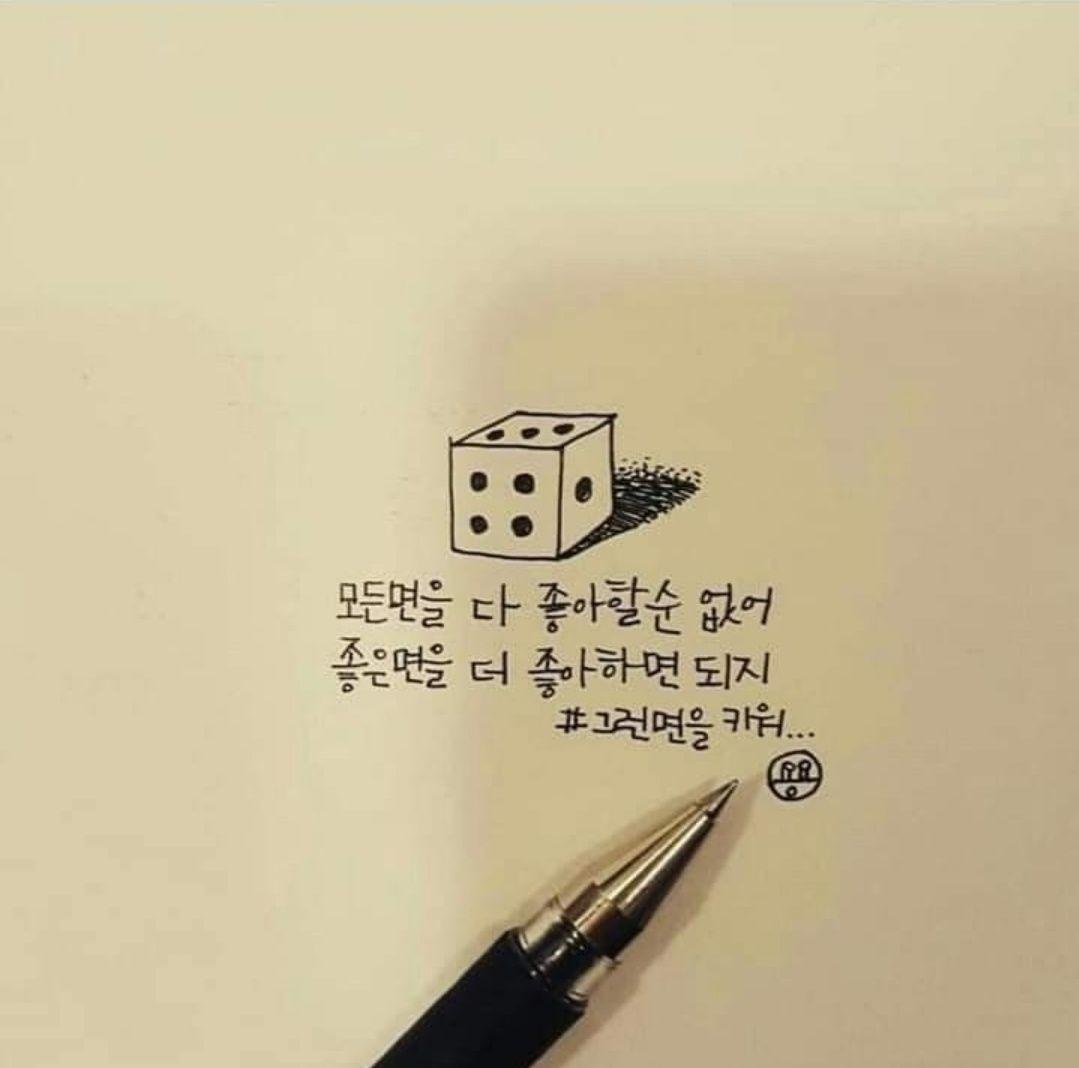 모든면을 다 좋아할순 없어
좋은면을 더 좋아하면 되지
#그런면을 키워...